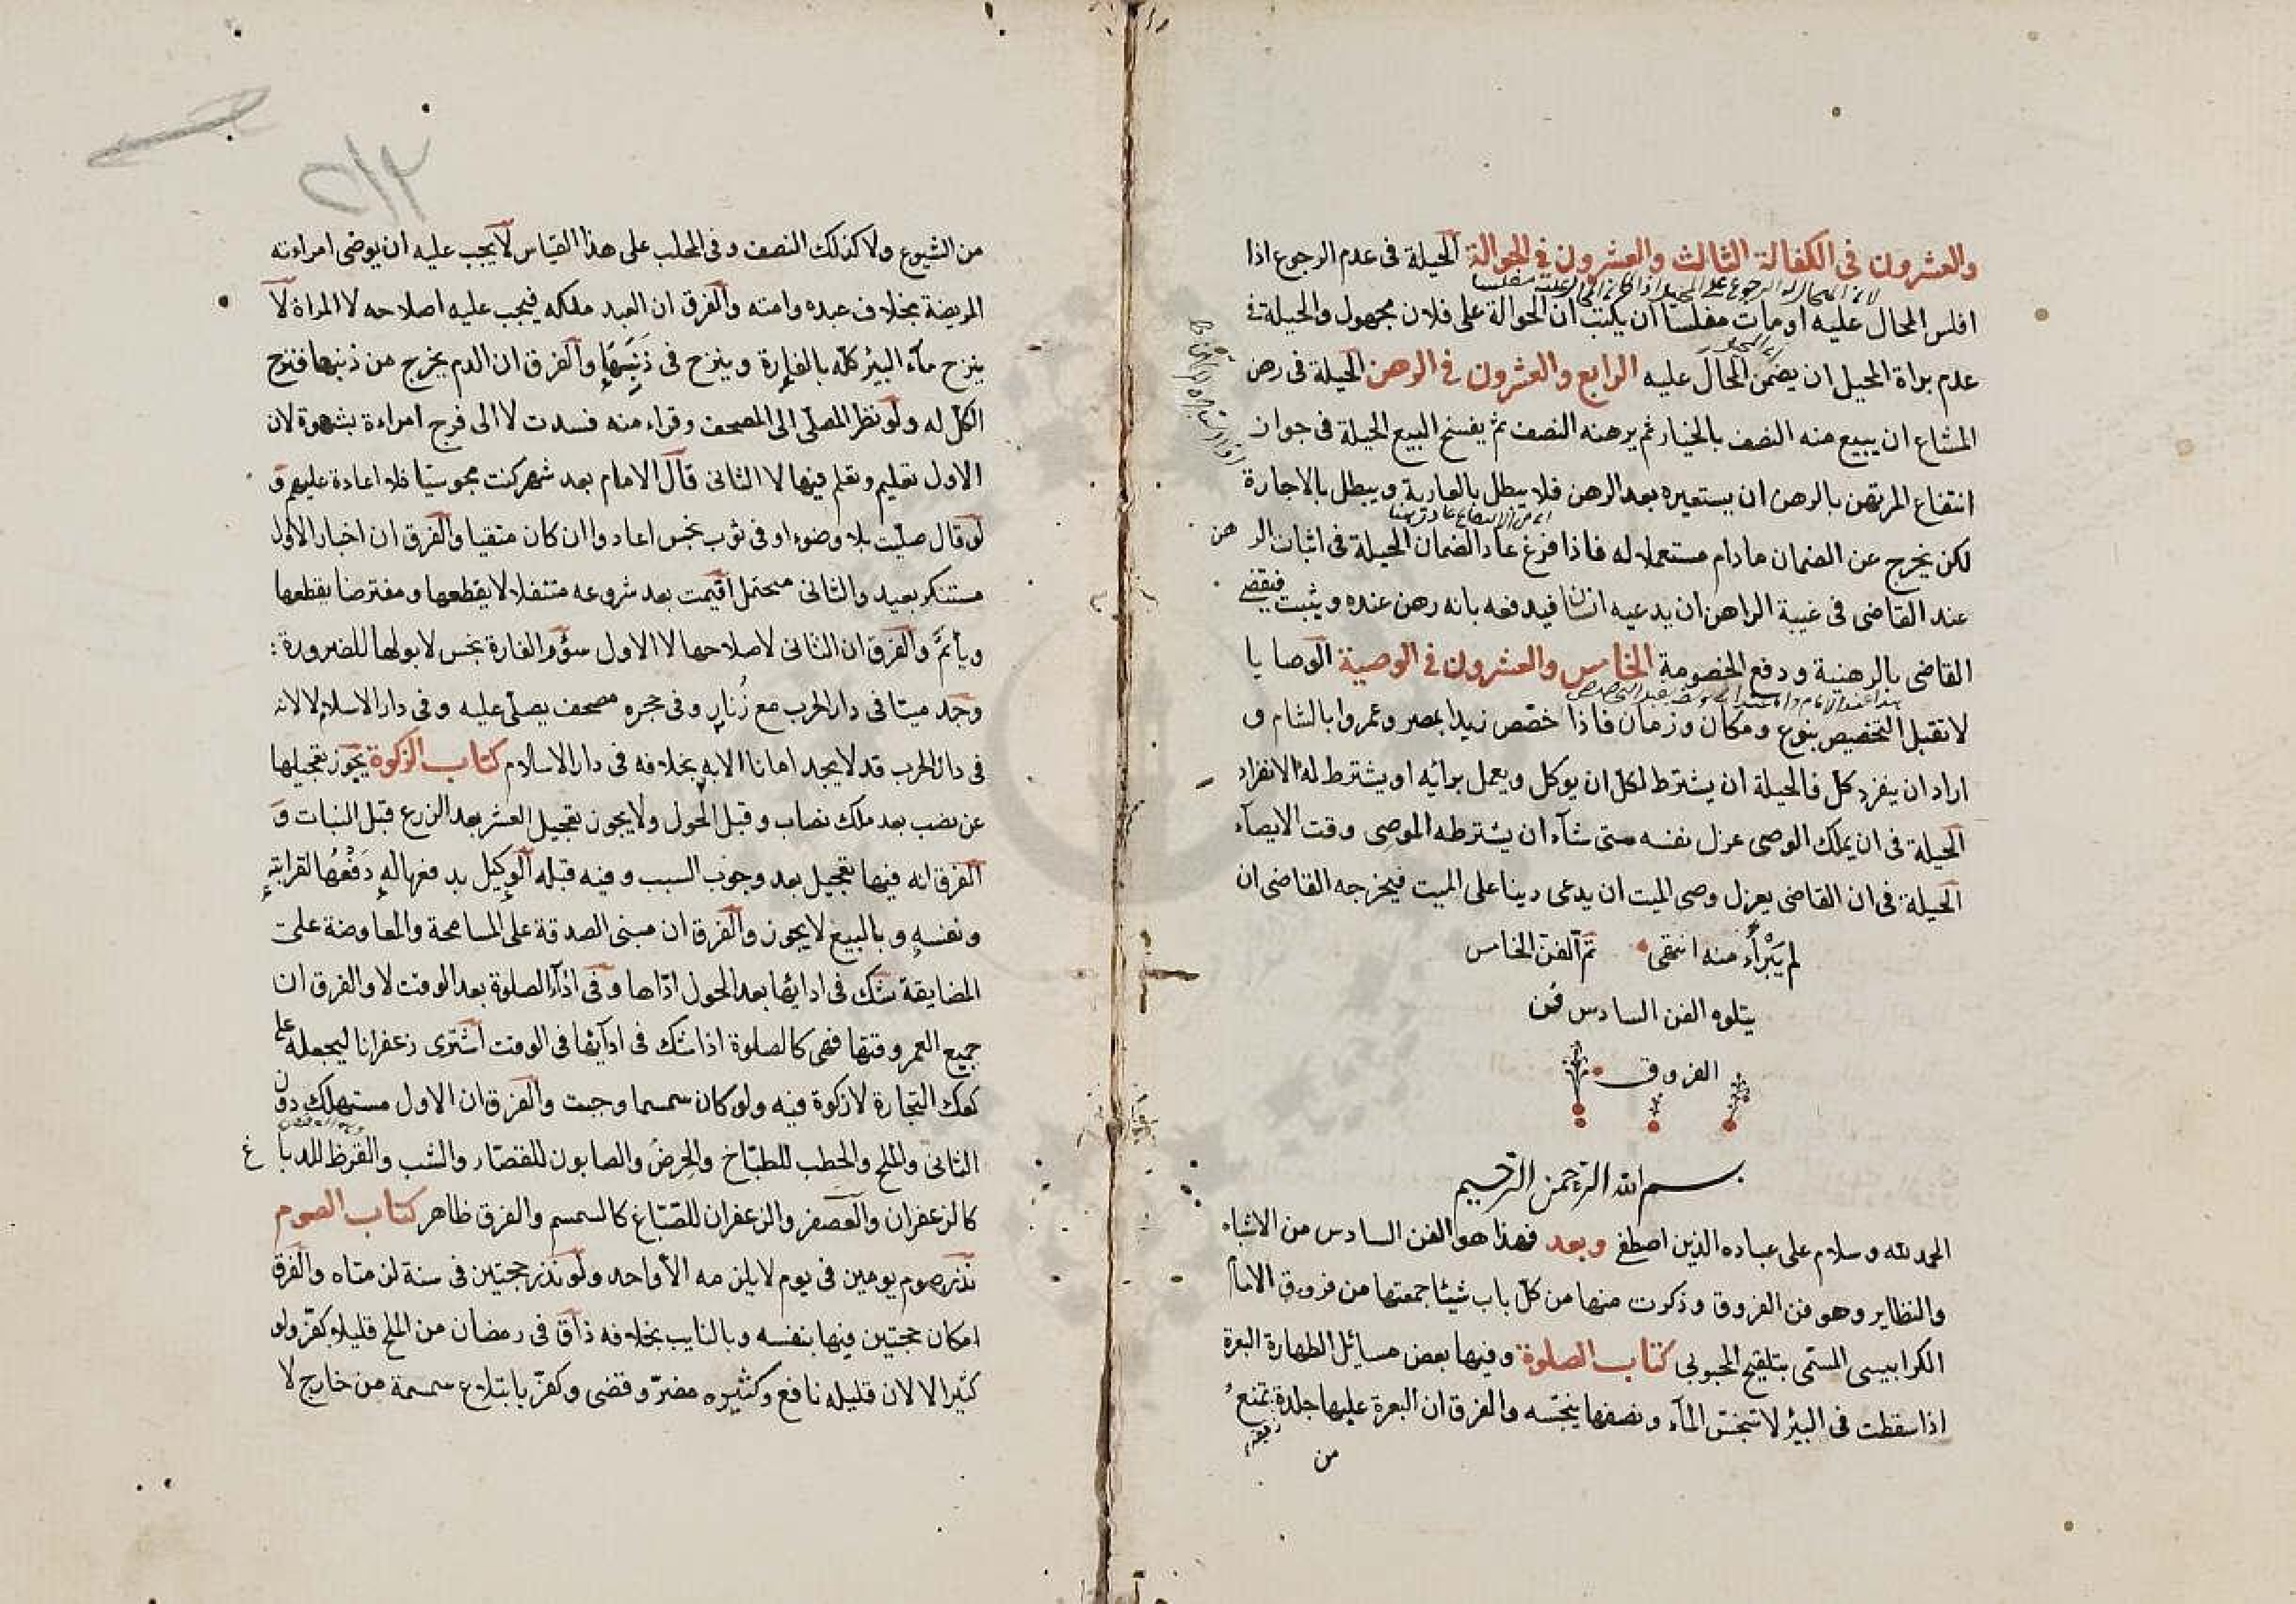 والعشرون في الكفالة الثالث والعشرون في الحوالة الحيلة في عدم الرجوع اذا
افلس المحال عليه او مات مفلسا ان يكتب ان الحوالة على فلان مجهول والحيلة في
عدم براة المحيل ان يضمن المحال عليه الرابع والعشرون في الرهن الحيلة في رهن
المشاع ان يبيع منه النصف بالخيار ثم يرهنه النصف ثم يفسخ البيع الحيلة في جواز
انتفاع المرتهن بالرهن ان يستعيره بعد الرهن فلا يبطل بالعارية ويبطل بالاجارة
لكن يخرج عن الضمان مادام مستعملا له فاذا فرغ عاد الضمان الحيلة في اثبات الرهن
عند القاضى في غيبة الراهن ان يدعيه انسان فيدفعه بانه رهن عنده ويثبت فيقضى
القاضى بالرهنية ودفع الخصومة الخامس والعشرون في الوصية الوصايا
لا تقبل التخصيص بنوع ومكان وزمان فاذا خصّص زيدا بمصر وعمروا بالشام و
اراد ان ينفرد كل فالحيلة ان يشترط لكل ان يوكل ويعمل برائيه او يشترط له الانفراد
الحيلة في ان يملك الوصى عزل نفسه متى شآء ان يشترطه الموصى وقت الايصآء
الحيلة في ان القاضى يعزل وصى الميت ان يدعى دينا على الميت فيخرجه القاضى ان
لم يَبْرأْ منه انتهى تم الفن الخامس
يتلوه الفن السادس فن
الفروق
بسم الله الرحمن الرحيم
الحمد لله وسلام على عباده الذين اصطفى وبعد فهذا هو الفن السادس من الاشباه
والنظاير وهو فن الفروق وذكرت منها من كل باب شيئا جمعتها من فروق الامام
الكرابيسى المسمّى بتلقيح المحبوبى كتاب الصلوة وفيها بعض مسائل الطهارة البعرة
اذا سقطت في البئر لا تنجّس المآء ونصفها ينجّسه والفرق ان البعرة عليها جلدة تمنع
من
من الشيوع ولا كذلك النصف وفي المحلب على هذا القياس لا يجب عليه ان يوضى امراءته
المريضة بخلاف عبده وامته والفرق ان العبد ملكه فيجب عليه اصلاحه لا المراة لا
ينزح مآء البئر كله بالفارة وينزح في ذَنَبِهَا والفرق ان الدم يخرج من ذنبها فنزح
الكل له ولو نظر المصلّى الى المصحف وقراء منه فسدت لا الى فرج امراءة بشهوة لان
الاول تعليم وتعلم فيها لا الثانى قال الامام بعد شهر كنت مجوسيّا فلا اعادة عليهم و
لو قال صلّيت بلا وضوء او في ثوب نجس اعادوا ان كان متقيا والفرق ان اخبار الاول
مستنكر بعيد والثانى محتمل اقيمت بعد شروعه متنفلا لا يقطعها ومفترضا يقطعها
ويأتمّ والفرق ان الثانى لاصلاحها لا الاول سؤر الفارة نجس لا بولها للضرورة
وجد ميتا في دار الحرب مع زُنار وفي حجره مصحف يصلّى عليه وفي دار الاسلام لا لانه
في دار الحرب قد لا يجد امانا الا به بخلافه في دار الاسلام كتاب الزكوة يجوز تعجيلها
عن نصب بعد ملك نصاب وقبل الحول ولا يجوز تعجيل العشر بعد الزرع قبل النبات و
الفرق انه فيها تعجيل بعد وجوب السبب وفيه قبله الوكيل بدفعها له دَفْعُها لقرابته
ونفسه وبالبيع لا يجوز والفرق ان مبنى الصدقة على المسامحة والمعاوضة على
المضايقة شك في ادائها بعد الحول ادّاها وفي ادآء الصلوة بعد الوقت لا والفرق ان
جميع العمر وقتها فهى كالصلوة اذا شك في ادآئها في الوقت اشترى زعفرانا ليجعله على
كعك التجارة لا زكوة فيه ولو كان سمسما وجبت والفرق ان الاول مستهلك دون
الثانى والملح والحطب للطبّاخ والحرض والصابون للقصّار والشب والقرظ للدباغ
كالزعفران والعصفر والزعفران للصبّاغ كالسمسم والفرق ظاهر كتاب الصوم
نذر صوم يومين في يوم لا يلزمه الا واحد ولو نذر حجتين في سنة لزمتاه والفرق
امكان حجتين فيها بنفسه وبالنايب بخلافه ذاق في رمضان من الملح قليلا كفّر ولو
كثيرا لا لان قليله نافع وكثيره مضرّ وقضى وكفّر بابتلاع سمسمة من خارج لا